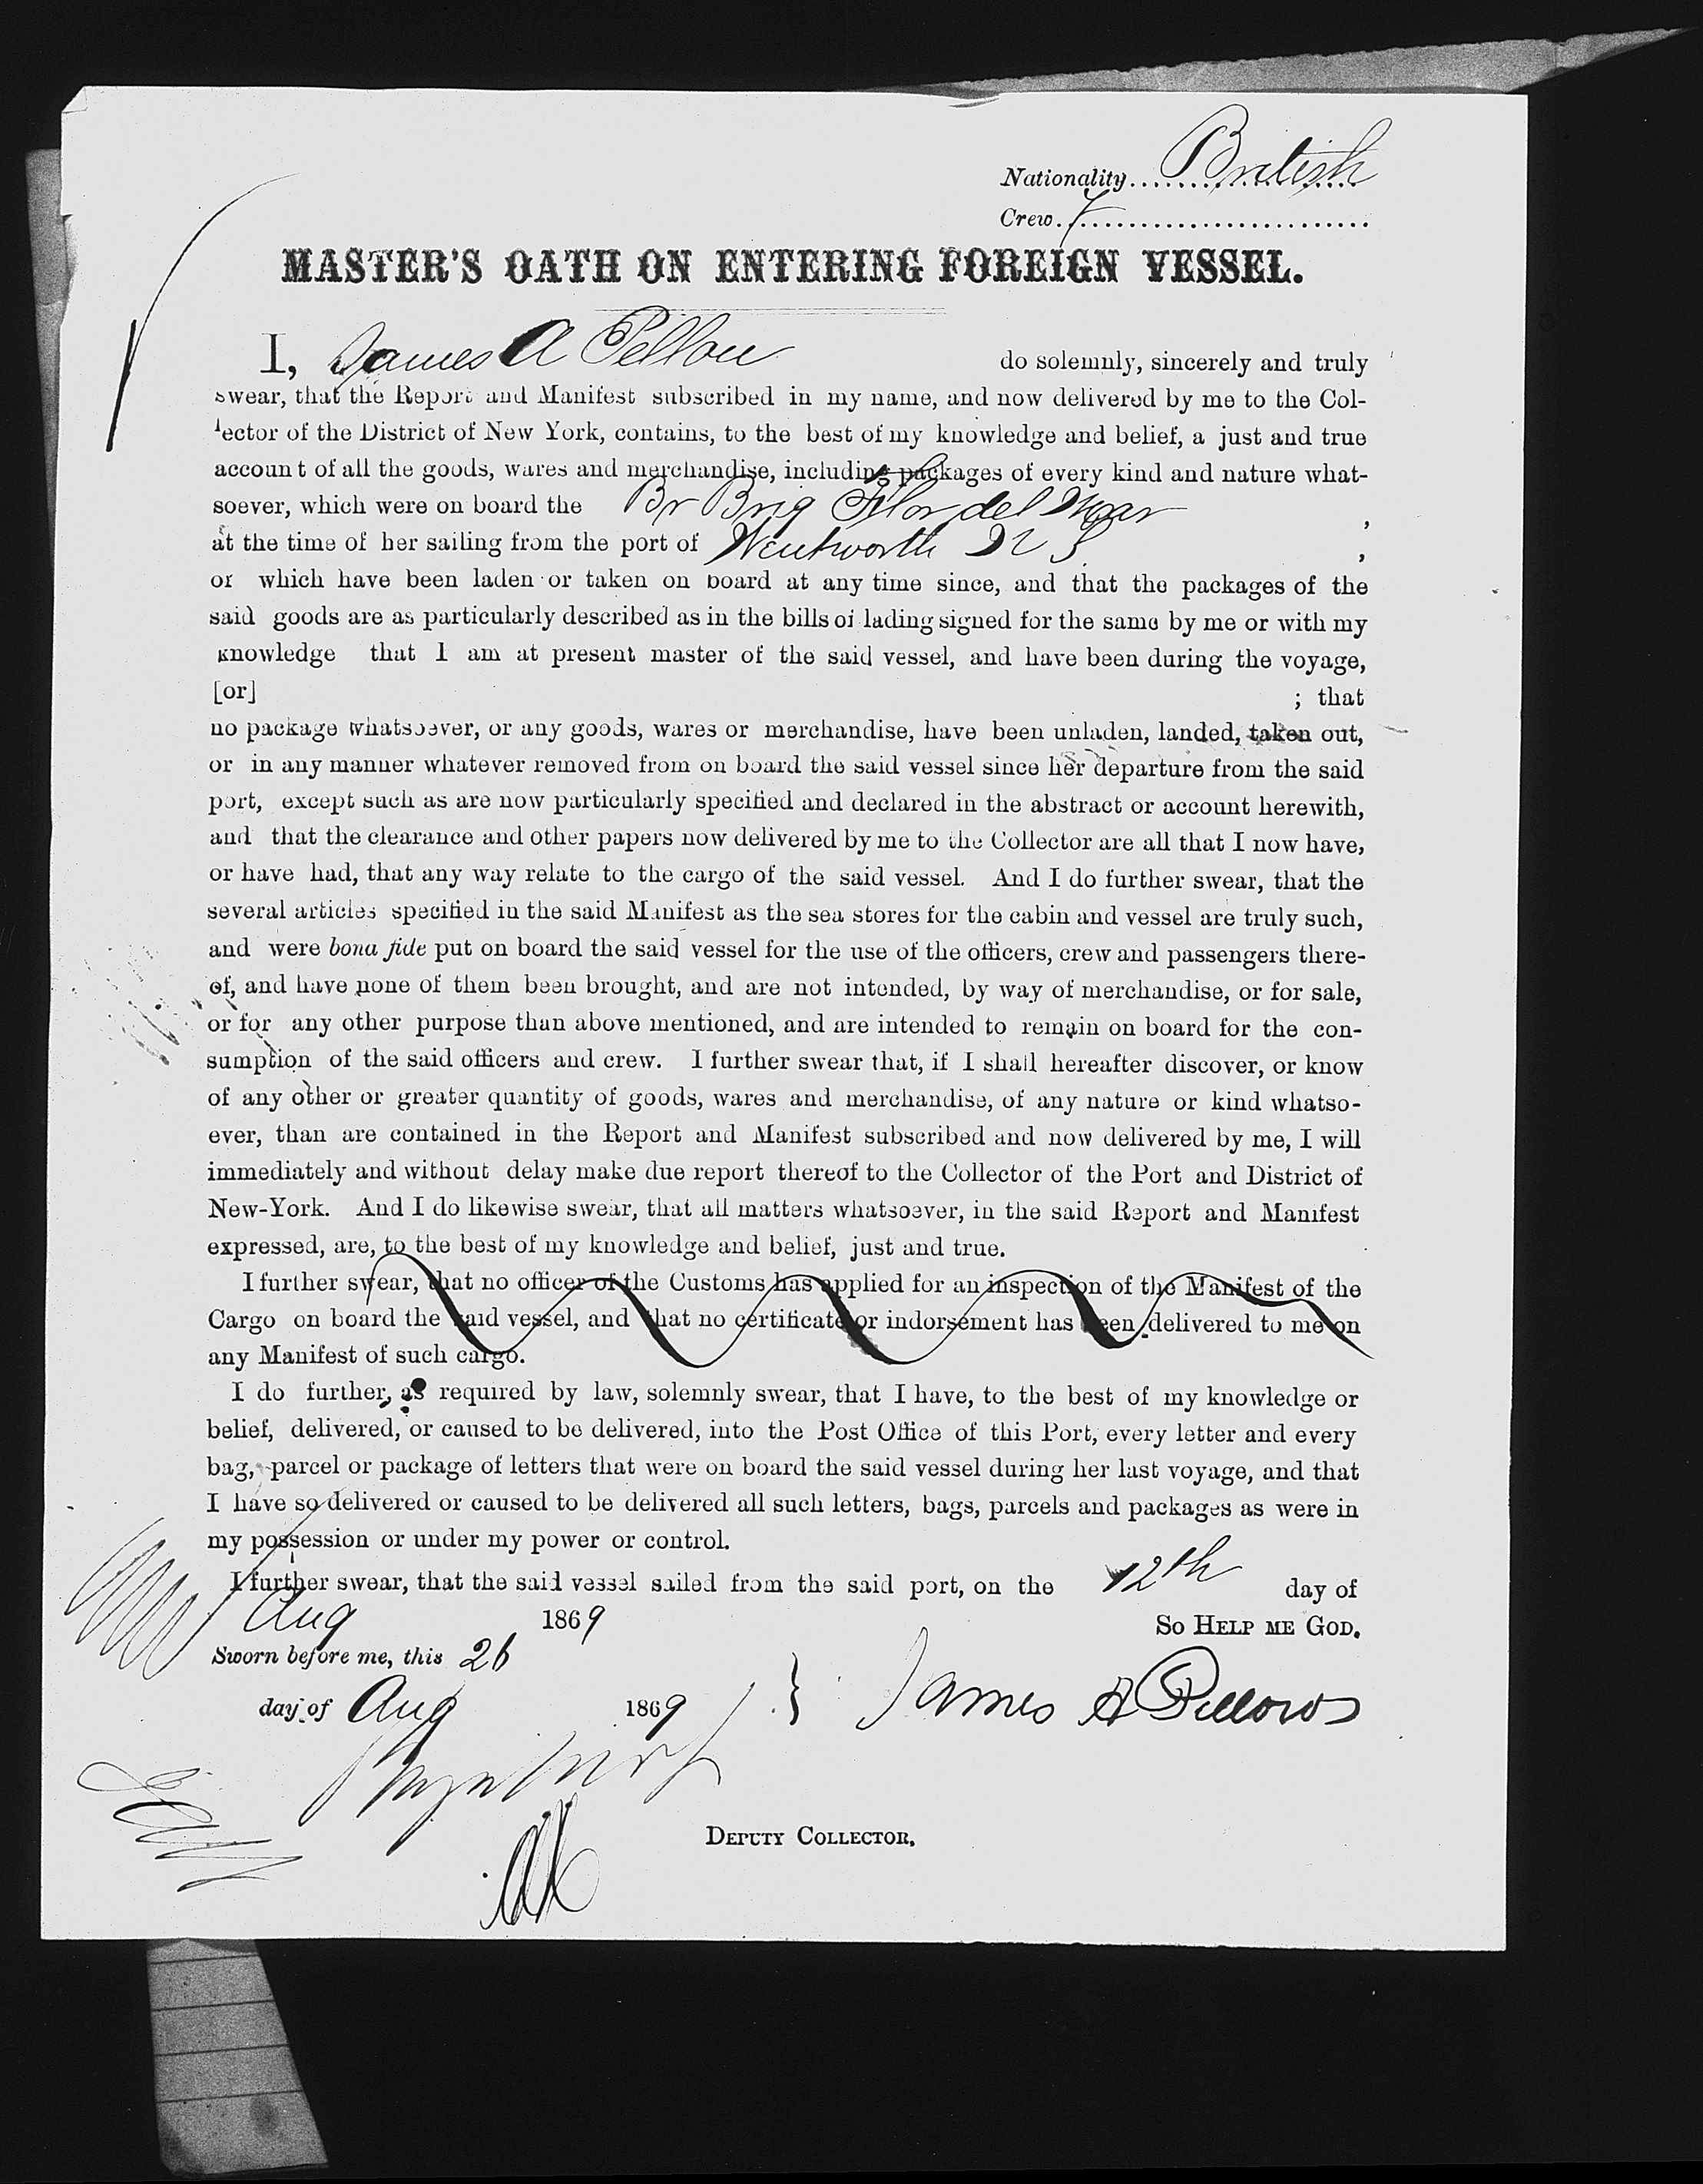 Nationality British
Crew 7
MASTER'S OATH ON ENTERING FOREIGN VESSEL.
I, James A Pellow do solemnly, sincerely and truly
swear, that the Report and Manifest subscribed in my name, and now delivered by me to the Col-
lector of the District of New York, contains, to the best of my knowledge and belief, a just and true
account of all the goods, wares and merchandise, including packages of every kind and nature what-
soever, which were on board the Br Brig Flor del Mar ,
at the time of her sailing from the port of Wentworth N S ,
or which have been laden or taken on board at any time since, and that the packages of the
said goods are as particularly described as in the bills of lading signed for the same by me or with my
knowledge that I am at present master of the said vessel, and have been during the voyage,
[or] ; that
no package whatsoever, or any goods, wares or merchandise, have been unladen, landed, taken out,
or in any manner whatever removed from on board the said vessel since her departure from the said
port, except such as are now particularly specified and declared in the abstract or account herewith,
and that the clearance and other papers now delivered by me to the Collector are all that I now have,
or have had, that any way relate to the cargo of the said vessel. And I do further swear, that the
several articles specified in the said Manifest as the sea stores for the cabin and vessel are truly such,
and were bona fide put on board the said vessel for the use of the officers, crew and passengers there-
of, and have none of them been brought, and are not intended, by way of merchandise, or for sale,
or for any other purpose than above mentioned, and are intended to remain on board for the con-
sumption of the said officers and crew. I further swear that, if I shall hereafter discover, or know
of any other or greater quantity of goods, wares and merchandise, of any nature or kind whatso-
ever, than are contained in the Report and Manifest subscribed and now delivered by me, I will
immediately and without delay make due report thereof to the Collector of the Port and District of
New-York. And I do likewise swear, that all matters whatsoever, in the said Report and Manifest
expressed, are, to the best of my knowledge and belief, just and true.
I further swear, that no officer of the Customs has applied for an inspection of the Manifest of the
Cargo on board the said vessel, and that no certificate or indorsement has been delivered to me on
any Manifest of such cargo.
I do further, as required by law, solemnly swear, that I have, to the best of my knowledge or
belief, delivered, or caused to be delivered, into the Post Office of this Port, every letter and every
bag, parcel or package of letters that were on board the said vessel during her last voyage, and that
I have so delivered or caused to be delivered all such letters, bags, parcels and packages as were in
my possession or under my power or control.
I further swear, that the said vessel sailed from the said port, on the 12th day of
Aug 1869 SO HELP ME GOD.
Sworn before me, this 26
day of Aug 1869 } James A Pellows
DEPUTY COLLECTOR.